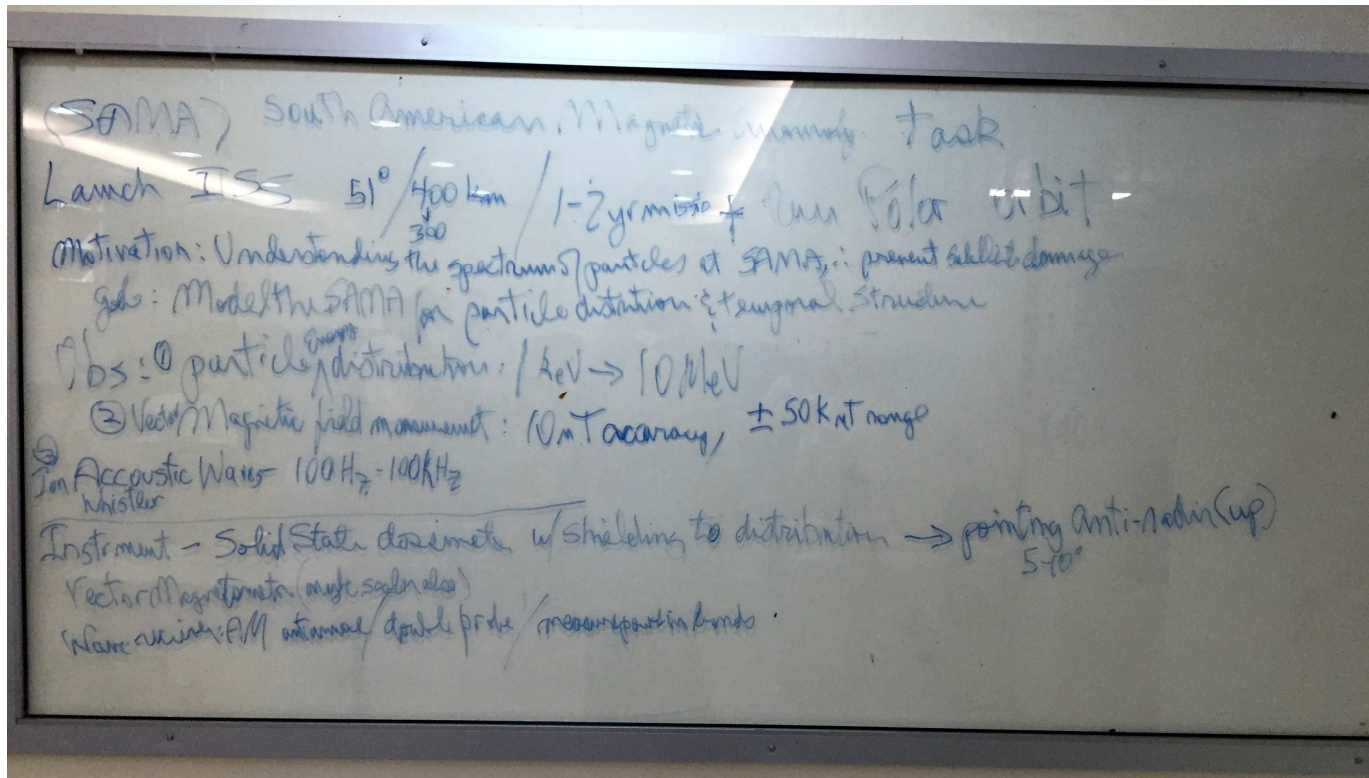 (SAMA) South American Magnetic Anomaly Task
Launch ISS 51° / 400 km / 1-2 yr mission + Polar orbit
300
Motivation: Understanding the spectrum of particles at SAMA, ∴ prevent damage
goal: Model the SAMA for particle distribution & temporal structure
Obs: ① particle Energy distribution: 1 keV → 10 MeV
② Vector Magnetic field: 10 nT accuracy, ± 50K nT range
③ Ion Accoustic Waves 100Hz - 100KHz
Whistler
Instrment - Solid State dosimeter w/ shielding to distribution → pointing anti-nadir (up)
5-10°
Vector Magnetometer (maybe scalar also)
Wave: AM antennae / double probe / measure power in bands